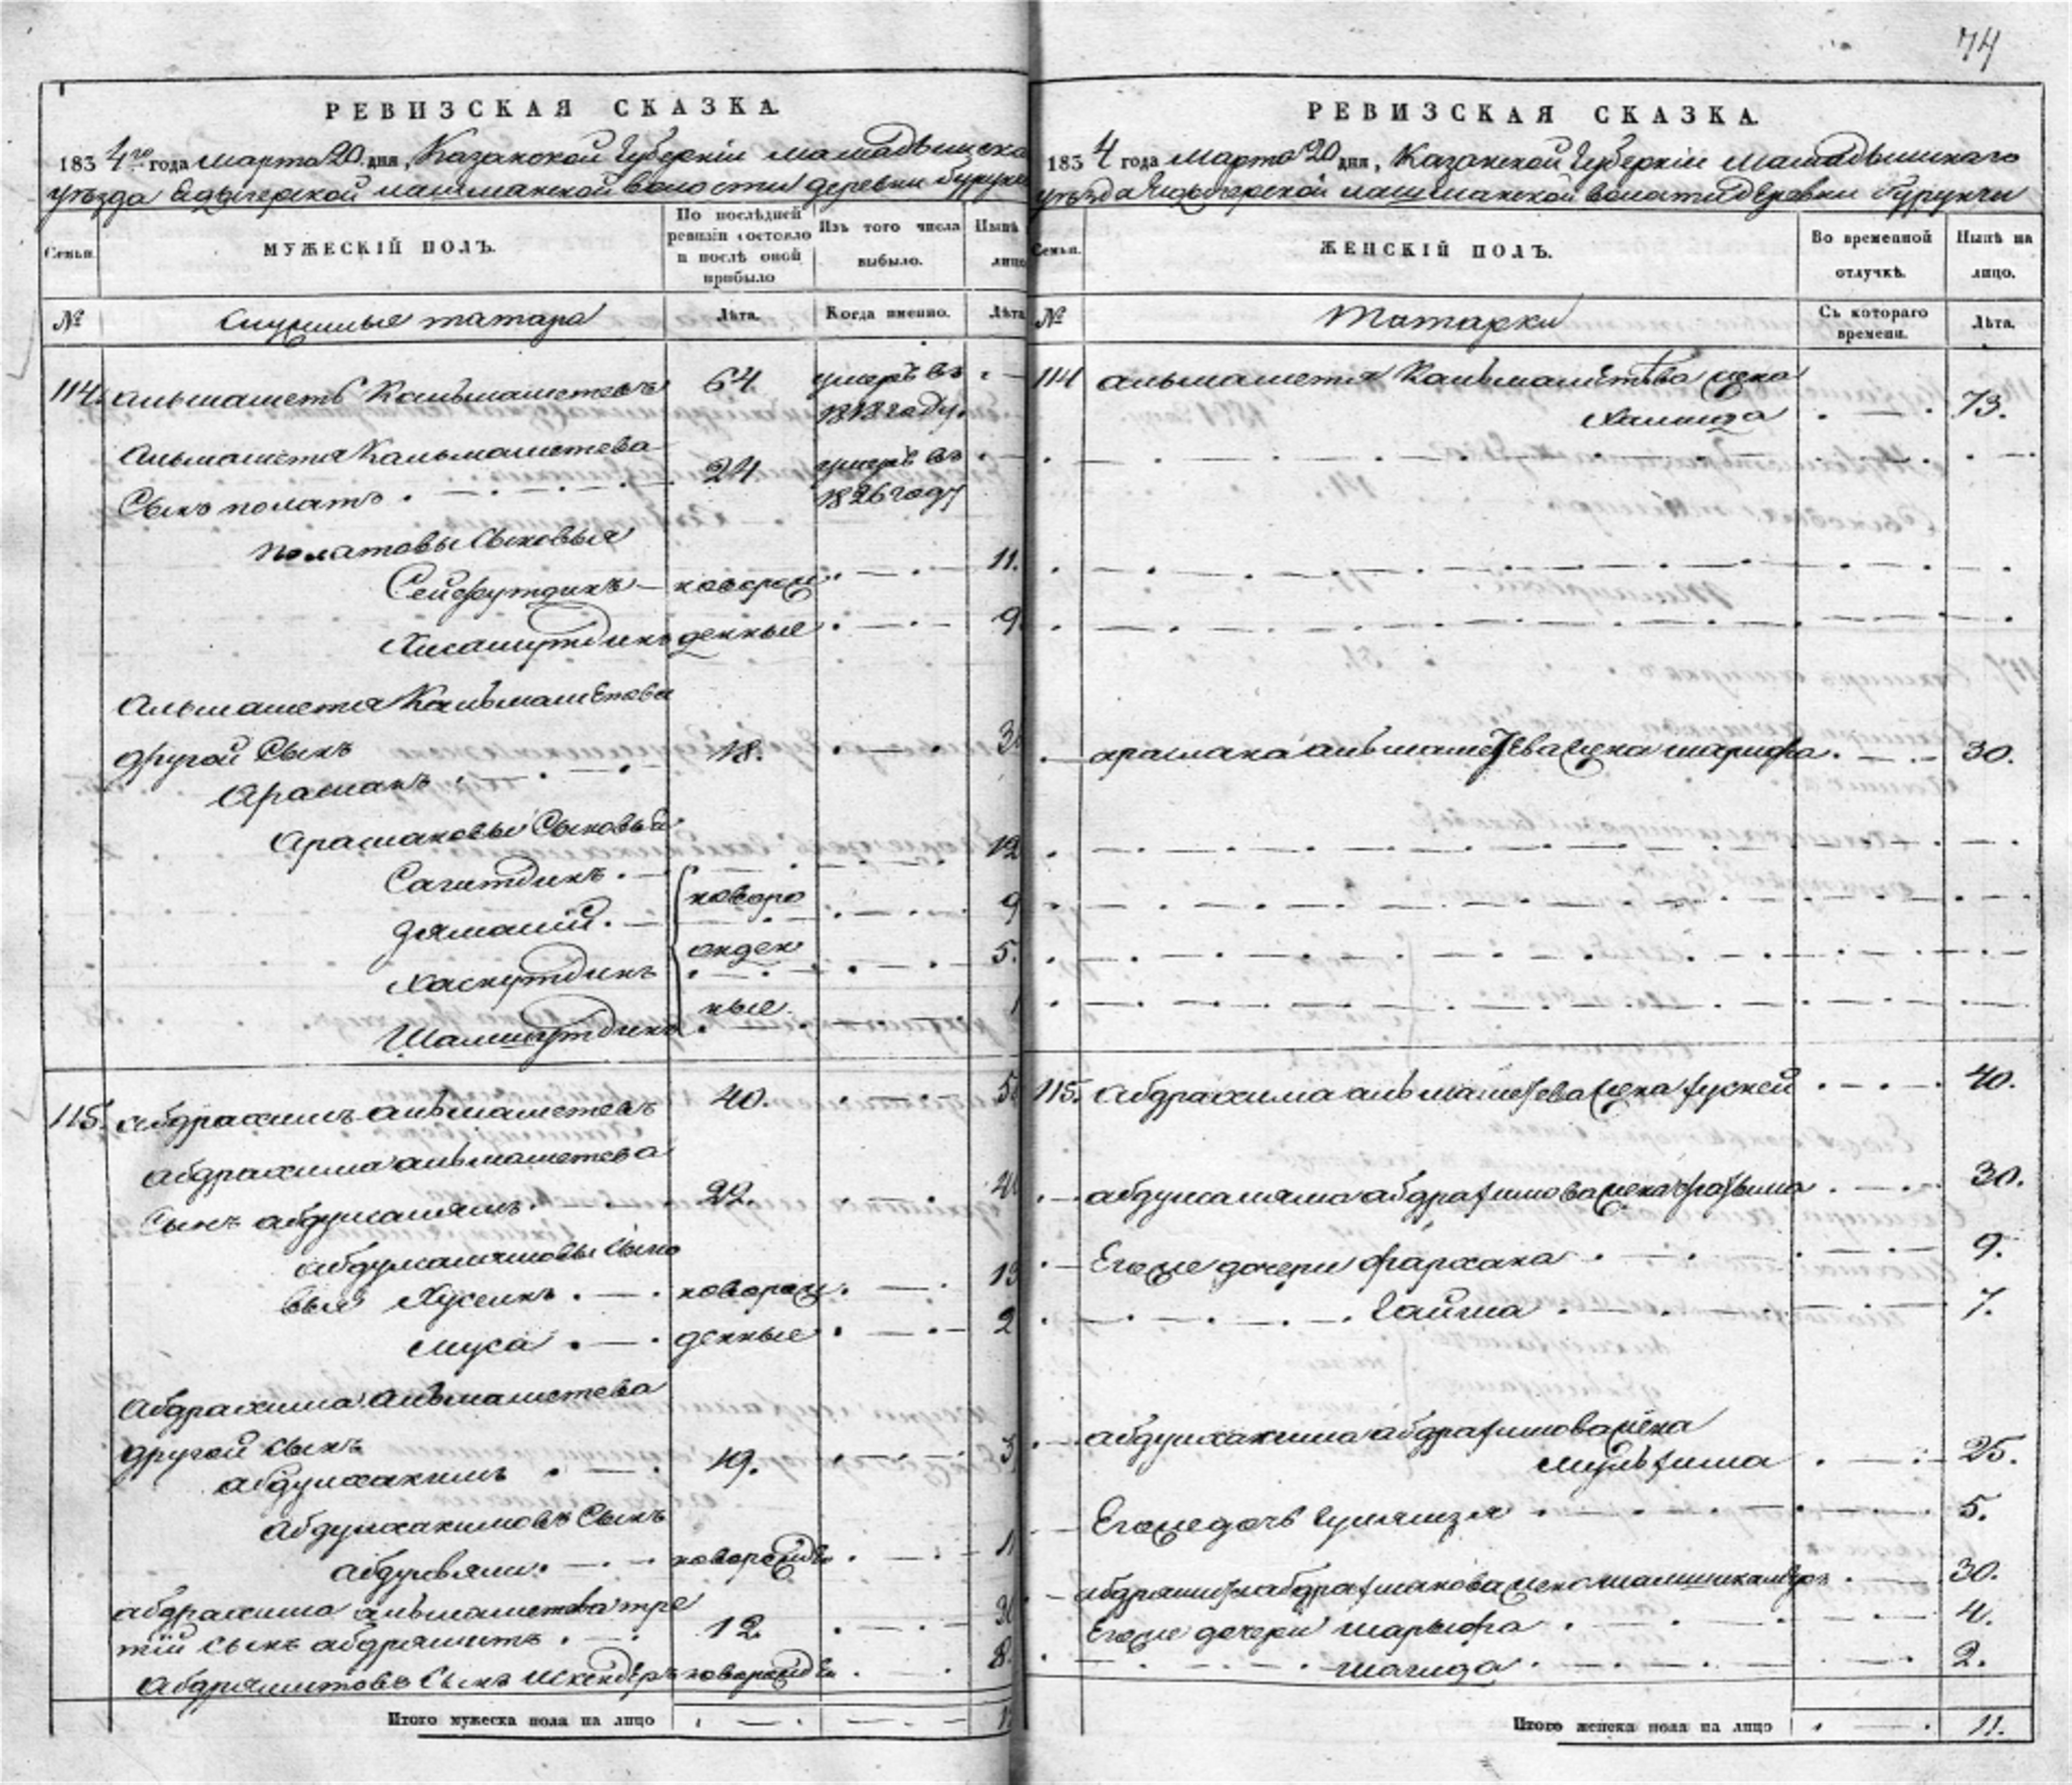 74
РЕВИЗСКАЯ СКАЗКА.
1834го года марта 20 дня, Казанской Губернiи мамадышска
уѣзда лашманской волости деревни
Семьи.
МУЖЕСКIЙ ПОЛЪ.
По послѣдней ревизiи состояло и послѣ оной прибыло
Изъ того числа выбыло.
Нынѣ лицо
№
Служилые татара
Лѣта.
Когда именно.
Лѣта
114. Альмаметь Кальмаметевъ 64 умеръ въ
1818 году.
Альматетя Кальмаметева 24 умеръ въ
Сынъ полатъ 1826 году
полатовы Сыновья
Сейфутдинъ новорож 11.
Хисамутдинъ денные 9
Альмаметя Кальмаметова
другой Сынъ 18. 3
Арасланъ
Араслановы Сыновья
Сагитдинъ 12
новоро
Зямалий 9
жден
Хаснутдинъ 5.
ные.
Шамшутдинъ 1
115. Абдрахимъ альмаметевъ 40. 5
абдрахима альмаметева
Сынъ абдулсалямъ 22. 4
абдулсалямовы Сыно
вья Хусеинъ новорож 13
муса денные 2
Абдрахима альмаметева
другой сынъ
абдулхакимъ 19. 3
абдулхакимовъ Сынъ
абдулвяли новорожд 11
абдрахима альмаметева тре
тiй сынъ абдряшитъ 12. 30
Абдряшитовъ Сынъ Искендѣръ новорожд 8.
Итого мужеска пола на лицо
РЕВИЗСКАЯ СКАЗКА.
1834 года марта 20 дня, Казанской Губернiи мамадышскаго
уѣзда лашманской волости деревни бурунчи
Семьи.
ЖЕНСКIЙ ПОЛЪ.
Во временной отлучкѣ.
Нынѣ на лицо.
№
Татарки
Съ котораго времени.
Лѣта.
114 альмаметя Кальмаметева жена
Халида 73.
араслана альмаметева жена шарифа 30.
115. абдрахима альмаметева жена 40.
абдулсаляма абдрахимова жена фатыма 30.
Его же дочери фархана 9.
Гайша 7.
абдулхакима абдрахимова жена
25.
Его же дочь 5.
30.
Его же дочери шарыфа 4.
шагида 2.
Итого женска пола на лицо 11.